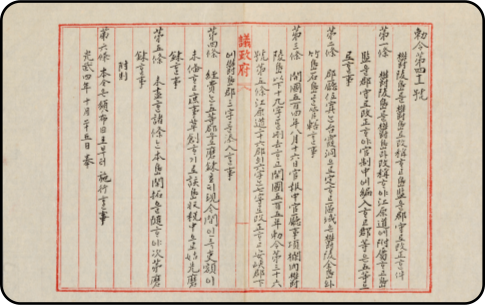 勅令第四十一號
鬱陵島를鬱島로改稱ᄒᆞ고島監을郡守로改正ᄒᆞᆫ件
第一條 鬱陵島를鬱島라改稱ᄒᆞ야江原道에附屬ᄒᆞ고島
監을郡守로改正ᄒᆞ야官制中에編入ᄒᆞ고郡等은五等으
로ᄒᆞᆯ事
第二條 郡廳位寘ᄂᆞᆫ台霞洞으로定ᄒᆞ고區域은鬱陵全島와
竹島石島를管轄ᄒᆞᆯ事
第三條 開國五百四年八月十六日官報中官廳事項欄內鬱
陵島以下十九字를刪去ᄒᆞ고開國五百五年勅令第三十六
號第五條江原道二十六郡의六字ᄂᆞᆫ七字로改正ᄒᆞ고安峽郡下
에鬱島郡三字를添入ᄒᆞᆯ事
議政府
第四條 經費ᄂᆞᆫ五等郡으로磨鍊호ᄃᆡ現今間인즉吏額이
未備ᄒᆞ고庶事草創ᄒᆞ기로該島收稅中으로姑先磨
鍊ᄒᆞᆯ事
第五條 未盡ᄒᆞᆫ諸條ᄂᆞᆫ本島開拓을隨ᄒᆞ야次第磨
鍊ᄒᆞᆯ事
附則
第六條 本令은頒布日로부터施行ᄒᆞᆯ事
光武四年十月二十五日奉